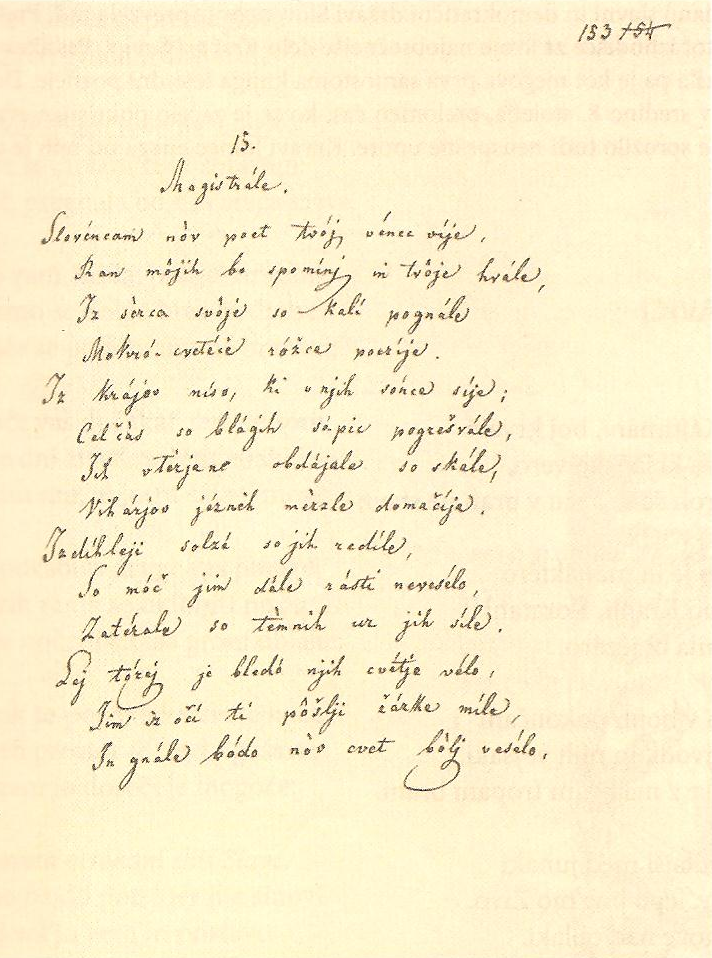 153 154
15.
Magistrále.
Slovéncam nòv poet tvój vénec víje,
Ran môjih bo spomínj in tvôje hvále,
Iz sèrca svôjé so kalí pognále
Mokró-cvetéče róžce poezíje.
Iz krájov niso, ki v njih sónce síje;
Celčàs so blágih sápic pogrešvále,
Jih vtèrjene obdájale so skále,
Vihárjov jéznih mèrzle domačíje.
Izdíhleji solzé so jih redíle,
So móč jim dále rásti nevesélo,
Zatérale so tèmnih ur jih síle.
Lej tórej je bledó njih cvétje vélo,
Jim iz očí tí pôšlji žárke míle,
In gnále bódo nòv cvet bòlj vesélo,